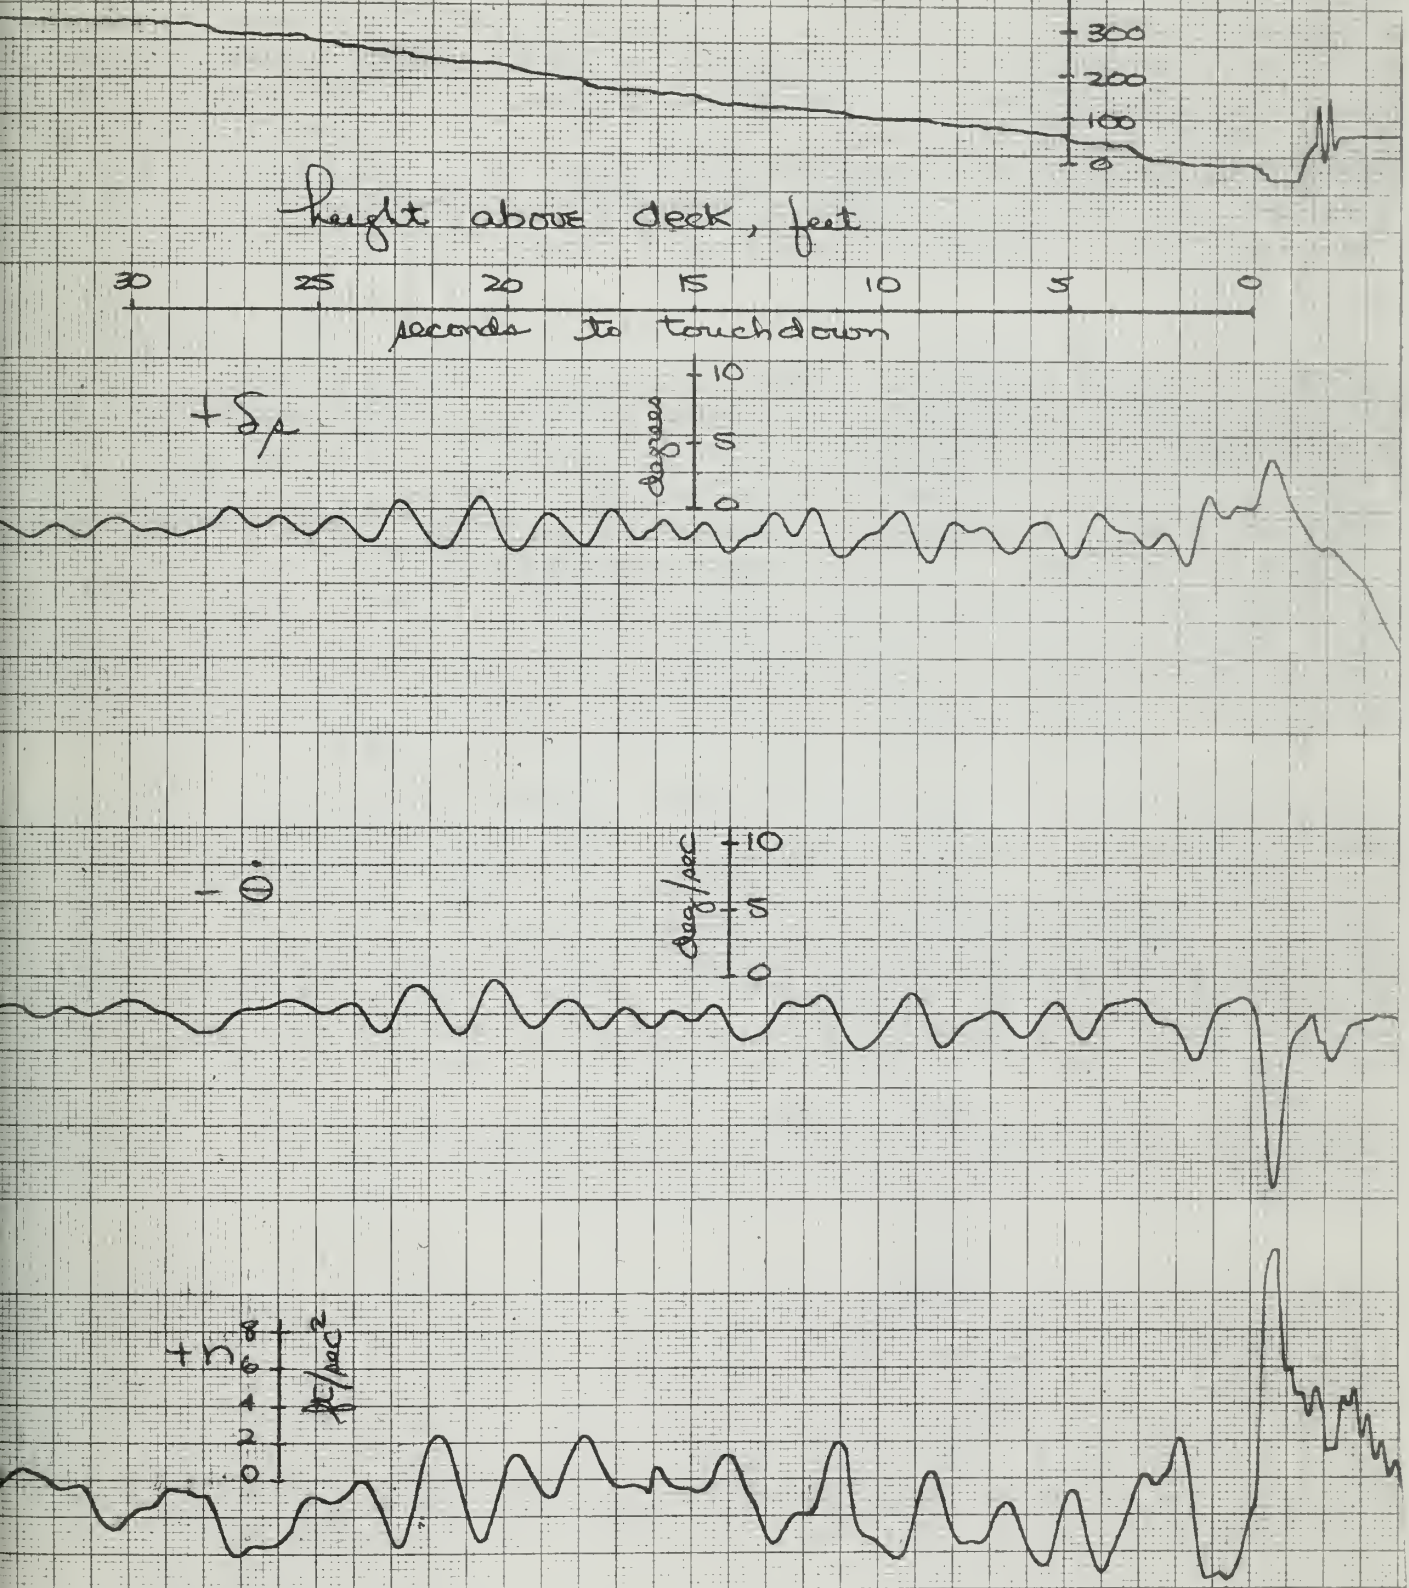 300
200
100
0
height above deck, feet
30 25 20 15 10 5 0
seconds to touchdown
+ δs
degrees
10
5
0
- θ̇
deg/sec
10
5
0
+ n
8
6
4
2
0
ft/sec²